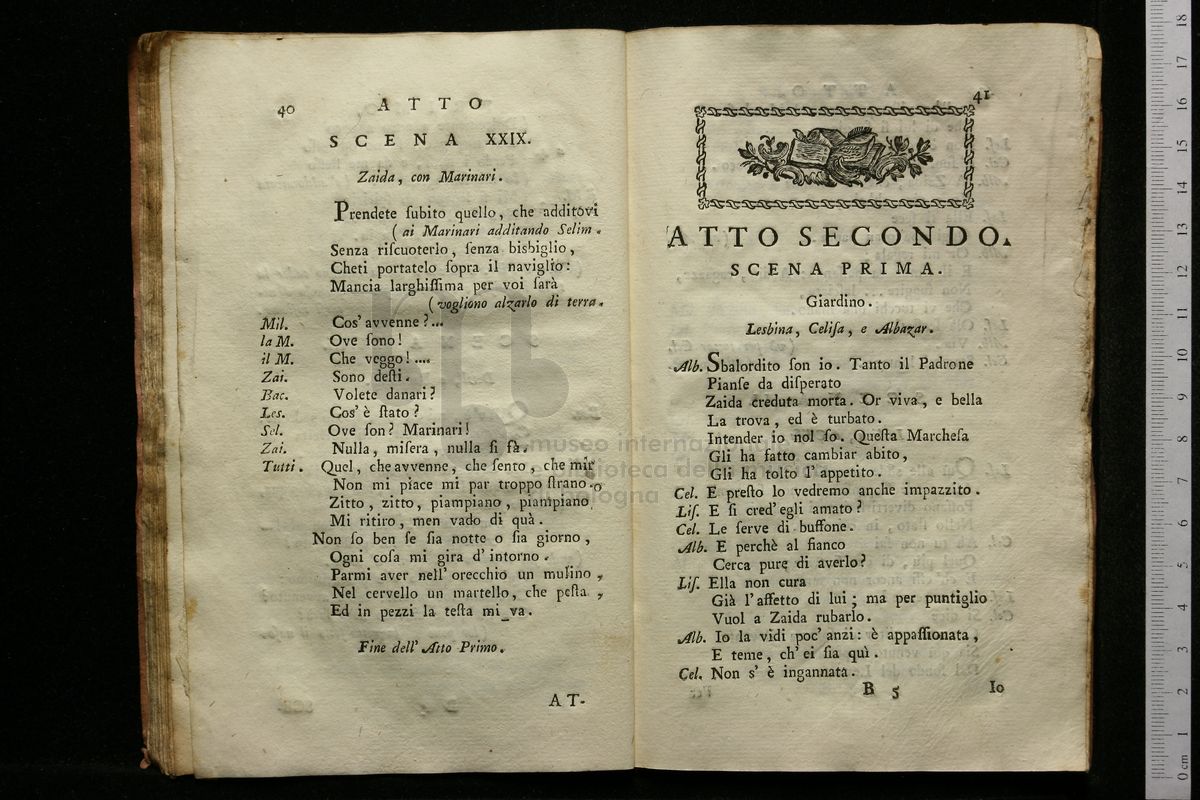 40 ATTO
SCENA XXIX.
Zaida, con Marinari.
Prendete ſubito quello, che additóvi
( ai Marinari additando Selim.
Senza riſcuoterlo, ſenza bisbiglio,
Cheti portatelo ſopra il naviglio:
Mancia larghiſſima per voi ſarà
( vogliono alzarlo di terra.
Mil. Cos' avvenne?...
la M. Ove ſono!
il M. Che veggo!....
Zai. Sono deſti.
Bac. Volete danari?
Les. Cos' è ſtato?
Sel. Ove ſon? Marinari!
Zai. Nulla, miſera, nulla ſi fà.
Tutti. Quel, che avvenne, che ſento, che miro
Non mi piace mi par troppo ſtrano.
Zitto, zitto, piampiano, piampiano
Mi ritiro, men vado di quà.
Non ſo ben ſe ſia notte o ſia giorno,
Ogni coſa mi gira d' intorno.
Parmi aver nell' orecchio un mulino,
Nel cervello un martello, che peſta,
Ed in pezzi la teſta mi va.
Fine dell' Atto Primo.
AT-
41
ATTO SECONDO.
SCENA PRIMA.
Giardino.
Lesbina, Celiſa, e Albazar.
Alb. Sbalordito ſon io. Tanto il Padrone
Pianſe da diſperato
Zaida creduta morta. Or viva, e bella
La trova, ed è turbato.
Intender io nol ſo. Queſta Marcheſa
Gli ha fatto cambiar abito,
Gli ha tolto l' appetito.
Cel. E preſto lo vedremo anche impazzito.
Liſ. E ſi cred' egli amato?
Cel. Le ſerve di buffone.
Alb. E perchè al fianco
Cerca pure di averlo?
Liſ. Ella non cura
Già l' affetto di lui; ma per puntiglio
Vuol a Zaida rubarlo.
Alb. Io la vidi poc' anzi: è appaſſionata,
E teme, ch' ei ſia quì.
Cel. Non s' è ingannata.
B 5 Io
museo internazionale
biblioteca della musica
bologna
0 cm 1 2 3 4 5 6 7 8 9 10 11 12 13 14 15 16 17 18